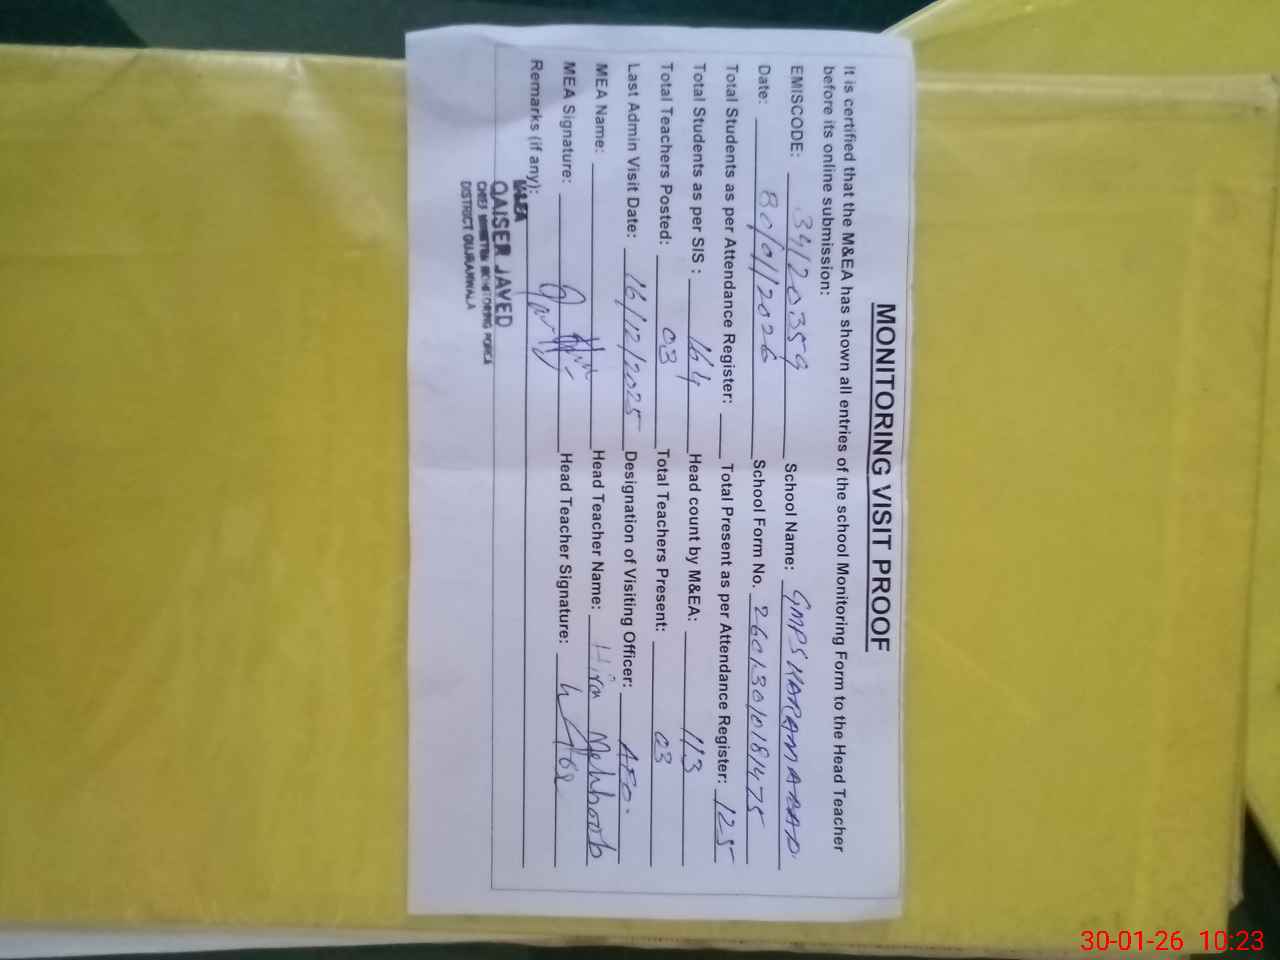 MONITORING VISIT PROOF
It is certified that the M&EA has shown all entries of the school Monitoring Form to the Head Teacher
before its online submission:
EMISCODE: 34120359 School Name: GMPS KARAMABAD
Date: 30/01/2026 School Form No. 26013010181475
Total Students as per Attendance Register: Total Present as per Attendance Register: 125
Total Students as per SIS : 164 Head count by M&EA: 113
Total Teachers Posted: 03 Total Teachers Present: 03
Last Admin Visit Date: 16/12/2025 Designation of Visiting Officer: AEO.
MEA Name: Head Teacher Name: Hira Mehboob
MEA Signature: Head Teacher Signature:
Remarks (if any):
QAISER JAVED
CHIEF MINISTER MONITORING FORCE
DISTRICT GUJRANWALA
30-01-26 10:23